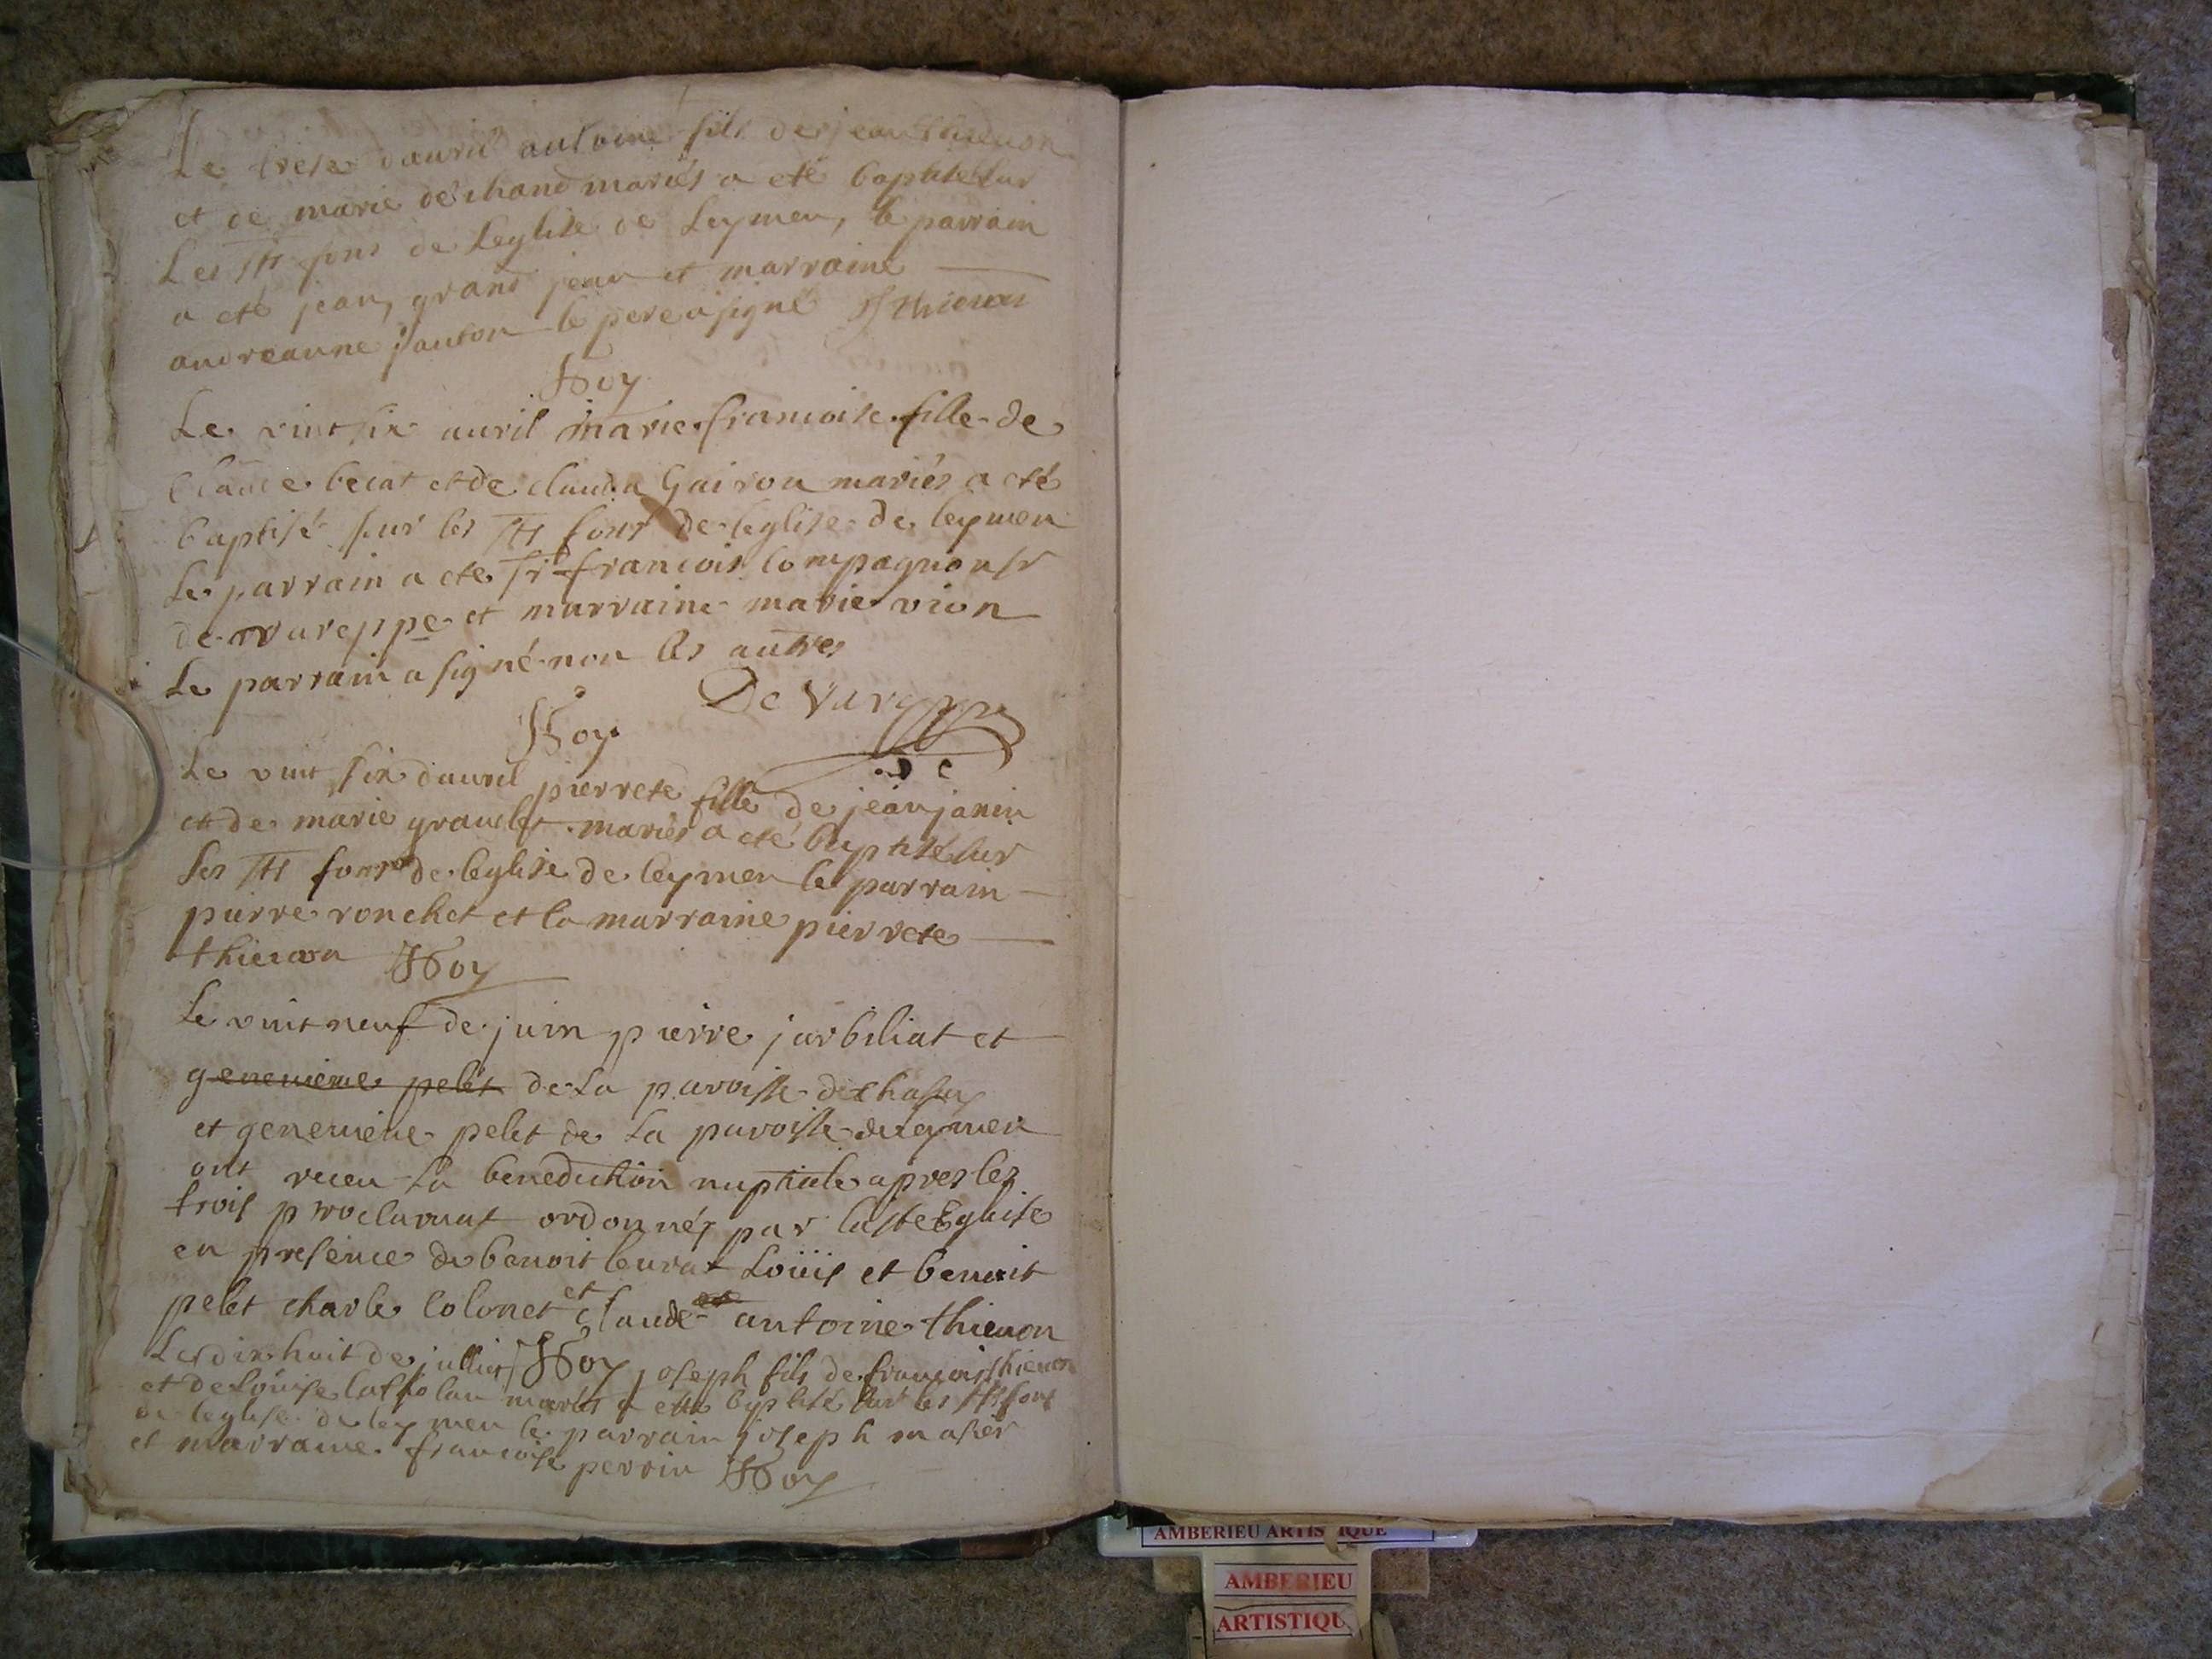 Le trese dauril antoine fils de jean thieuon
et de marie dechand mariés a eté baptisé sur
Les sts fons de Leglise de Leymen, le parrain
a eté jean, grand jean et marraine
andreanne janton le pere a signé J thieuon
Roy
Le vint six auril marie francoise fille de
Claude becat et de claudia Gairou mariés a eté
baptisé sur les sts fons de leglise de leymen
Le parrain a ete sr francois compagnon sr
de vareppe et marraine marie vion
Le parrain a signé non les autres
De Vareppe
Roy
Le vint six dauril pierrete fille de jean janin
et de marie grauclet mariés a eté baptisé sur
les sts fons de leglise de leymen le parrain
pierre ronchet et la marraine pierrete
thieuon Roy
Le vint neuf de juin pierre jarbiliat et
geneuieue pelet de La paroisse de chasey
et geneuieue pelet de La paroisse de leymen
ont receu la benediction nuptiale apres les
trois proclamat ordonnés par la ste Eglise
en presence de benoit leurat Loüis et benoit
pelet charle Colonet et Claude antoine thieuon
Le dix huit de julliet Roy joseph fils de francois thieuon
et de loüise mariés a eté baptisé sur les sts fons
de leglise de leymen le parrain joseph masier
et marraine francoise perrin Roy
AMBERIEU ARTISTIQUE
AMBERIEU
ARTISTIQU